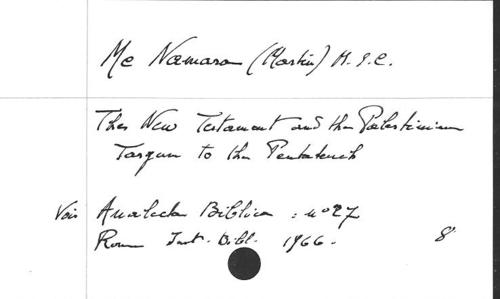 Mc Namara (Martin) M.S.C.
The New Testament and the Palestinian
Targum to the Pentateuch
Voir Analecta Biblica : n° 27
Rome Inst. Bibl. 1966.
8°